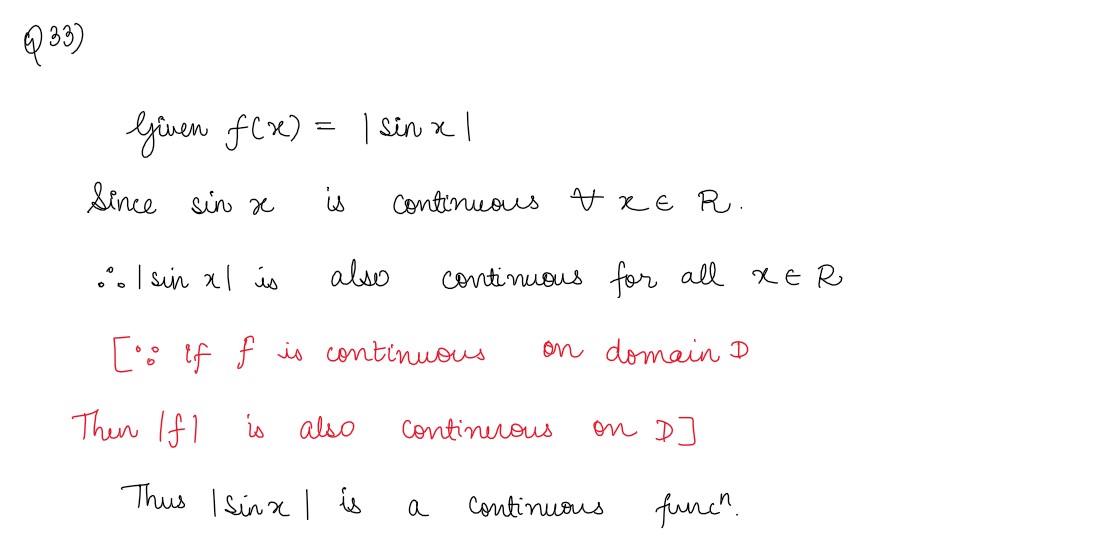 Q33)
Given f(x) = |sin x|
Since sin x is continuous ∀ x ∈ R.
∴ |sin x| is also continuous for all x ∈ R
[∵ if f is continuous on domain D
Then |f| is also continuous on D]
Thus |sin x| is a continuous funcⁿ.